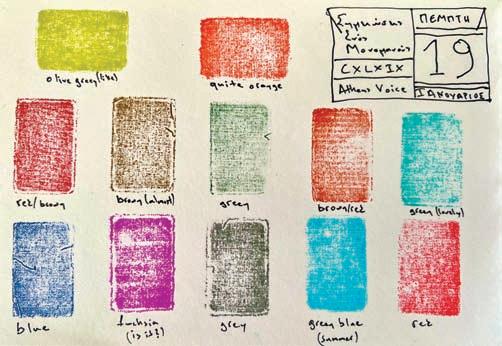 olive green (like)
quite orange
Σημειώσεις
Ενός
Μονομανούς
CXLXIX
Athens Voice
ΠΕΜΠΤΗ
19
ΙΑΝΟΥΑΡΙΟΣ
red/brown
brown (almost)
green
brown/red
green (lovely)
blue
fuchsia
(is it?)
grey
green blue
(summer)
red